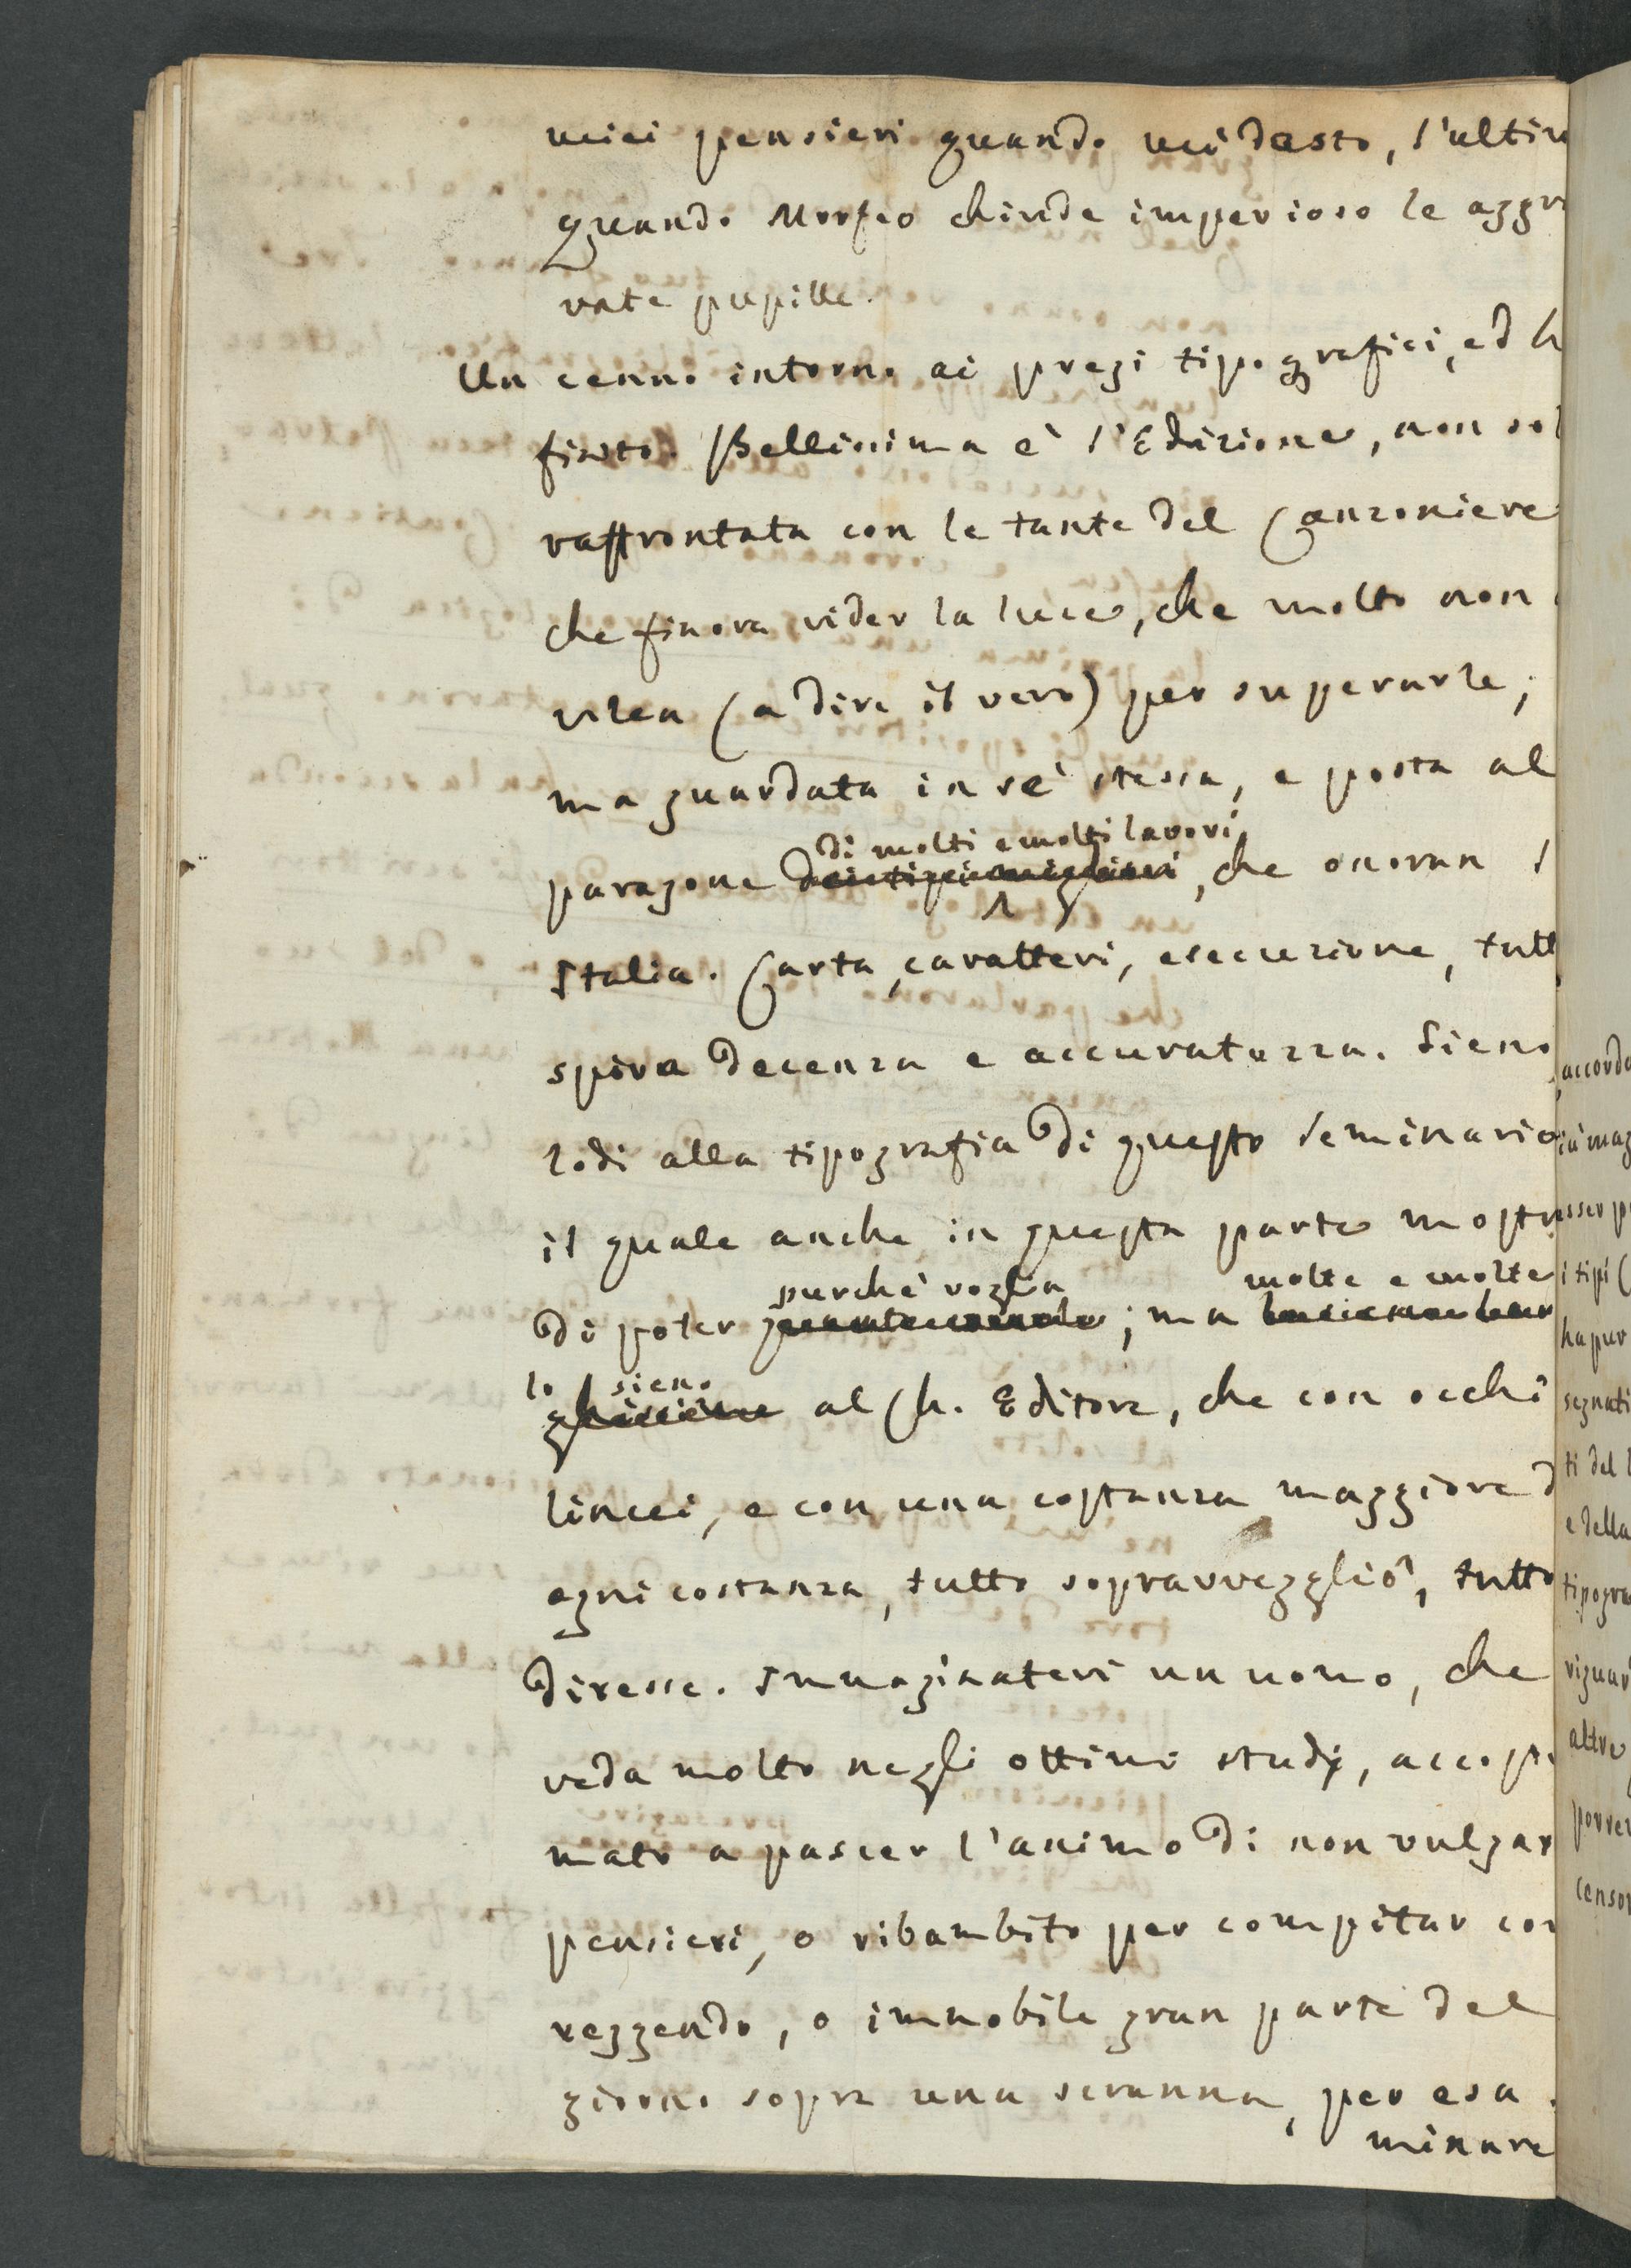 miei pensieri quando mi desto, l'ultim
quando Morfeo chiude imperioso le aggra
vate pupille.
Un cenno intorno ai pregi tipografici, ed h
finito. Bellissima è l'Edizione, non sol
raffrontata con le tante del Canzoniere
che finora vider la luce, che molto non
vilea (a dire il vero) per superarle;
ma guardata in sè stessa, e posta al
di molti e molti lavori
paragone dei tipi migliori, che onoran l
Italia. Carta, caratteri, esecuzione, tutt
spira decenza e accuratezza. Sieno
lodi alla tipografia di questo Seminario
il quale anche in questa parte mostra
purchè voglia molte e molte
di poter ; ma
lo sieno
al Ch. Editore, che con occhi
lincei, e con una costanza maggiore d
ogni costanza, tutto sopravvegliò, tutto
diresse. Immaginatevi un uomo, che
veda molto negli ottimi studj, accostu
mato a pascer l'animo di non vulgar
pensieri, o ribambito per compitar cor
reggendo, o immobile gran parte del
giorno sopra una scranna, per esa
minare
accorda
iù mag
sser p
i tipi (
ha pur
segnati
ti del l
e della
tipogra
riguar
altre
porre
censor